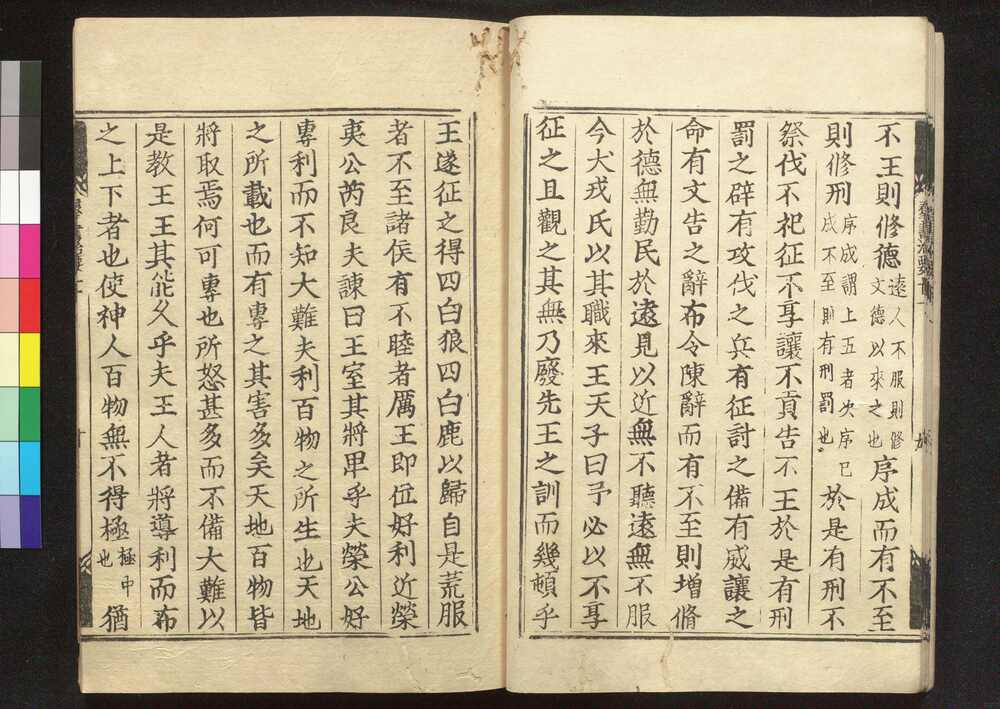 不王則脩德遠人不服則脩文德以來之也序成而有不至
則脩刑序成謂上五者次序已成不至則有刑罰也於是有刑不
祭伐不祀征不享讓不貢告不王於是有刑
罰之辟有攻伐之兵有征討之備有威讓之
命有文告之辭布令陳辭而有不至則增脩
於德無勤民於遠是以近無不聽遠無不服
今犬戎氏以其職來王天子曰予必以不享
征之且觀之其無乃廢先王之訓而幾頓乎
王遂征之得四白狼四白鹿以歸自是荒服
者不至諸侯有不睦者厲王即位好利近榮
夷公芮良夫諫曰王室其將卑乎夫榮公好
專利而不知大難夫利百物之所生也天地
之所載也而有專之其害多矣天地百物皆
將取焉何可專也所怒甚多而不備大難以
是教王王其能久乎夫王人者將導利而布
之上下者也使神人百物無不得極極中也猶